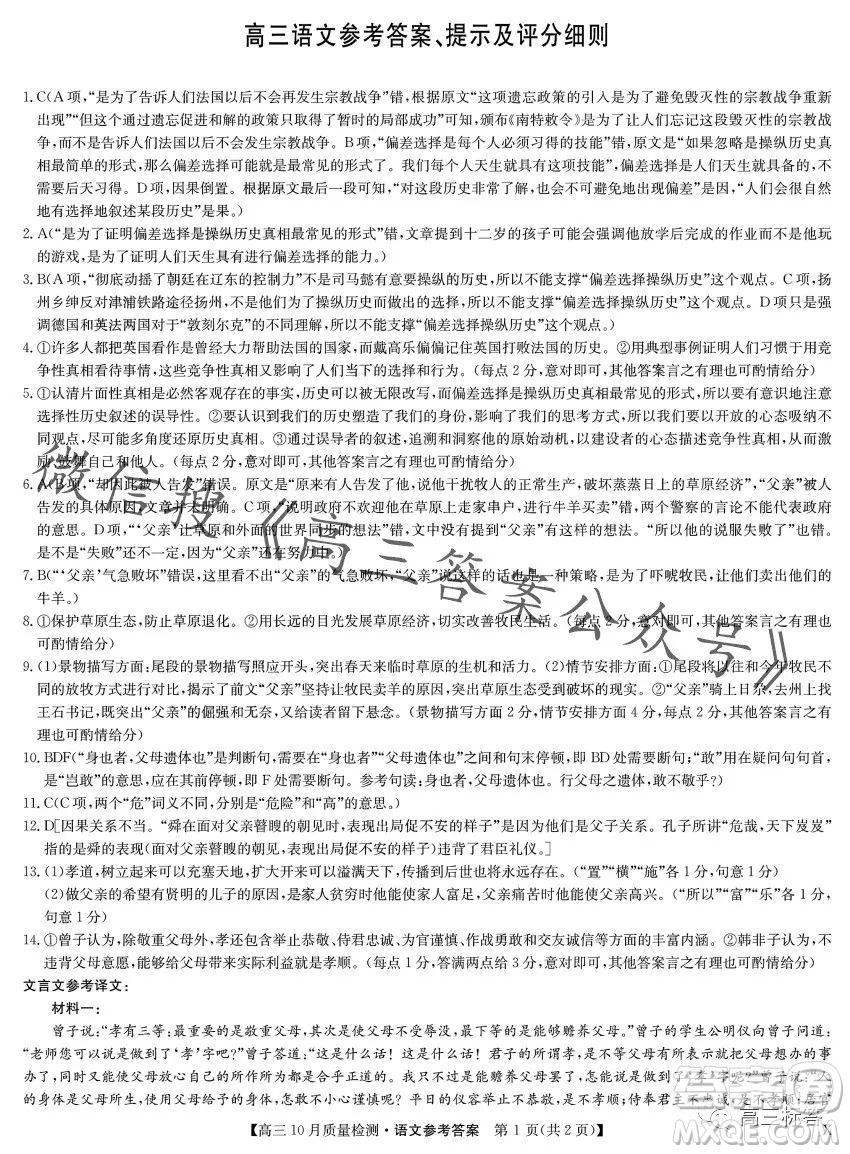 高三语文参考答案、提示及评分细则
1. C(A 项，“是为了告诉人们法国以后不会再发生宗教战争”错，根据原文“这项遗忘政策的引入是为了避免毁灭性的宗教战争重新
出现”“但这个过度促进和解的政策只取得了暂时的局部成功”可知，颁布《南特敕令》是为了让人们忘记这段毁灭性的宗教战
争，而不是告诉人们法国以后不会再发生宗教战争。B 项，“偏差选择是每个人必须习得的技能”错，原文是“如果忽略是操纵历史真
相最简单的形式，那么偏差选择可能就是最常见的形式了。我们每个人天生就具有这项技能”，偏差选择是人们天生就具备的，不
需后天习得。D 项，因果倒置。根据原文最后一段可知，“对这段历史非常了解，也会不可避免地出现偏差”是因，“人们会很自然
地有选择地叙述某段历史”是果。)
2. A(“是为了证明偏差选择是操纵历史真相最常见的形式”错，文章提到十二岁的孩子可能会放学后完成的作业而不是他玩
的游戏，是为了证明人们天生具有选择性地进行叙述的能力。)
3. B(A 项，“彻底动摇了朝廷在辽东的控制力”不是司马懿有意要操纵的历史，所以不能支撑“偏差选择操纵历史”这个观点。C 项，扬
州乡绅反对津浦铁路途径扬州，不是他们为操纵历史而做出的选择，所以不能支撑“偏差选择操纵历史”这个观点。D 项只是
强调德国和英法两国对于“敦刻尔克”的不同理解，所以不能支撑“偏差选择操纵历史”这个观点。)
4. ①许多人都把英国看作是曾经大力帮助法国的国家，而戴高乐偏偏记住英国打败法国的事例。②用典型事例证明人们习惯于用竞
争性真相看待事情，这些竞争性真相又影响了人们当下的选择与行为。(每点 2 分，意对即可，其他答案言之有理也可酌情给分)
5. ①认清片面性真相是必然客观存在的事实，历史可以被无意或有意操纵，偏差选择是操纵历史真相最常见的形式，所以要有意识地注意
选择性历史叙述的误导性。②要认识到我们的历史塑造了我们的身份，影响了我们的思考方式，所以我们要以开放的心态吸纳不
同观点，尽可能多角度还原历史真相。③通过分析叙述者的叙述，追溯和洞察他的原始动机，以建设者的心态描述竞争性真相，从而激
励、鼓舞自己和他人。(每点 2 分，意对即可，其他答案言之有理也可酌情给分)
6. A(B 项，“却因此被人告发”错误。原文是“原来有人检举告发了他，说他干扰牧人的正常生产，破坏蒸蒸日上的草原经济”，“父亲”被人
告发的具体原因，文章并未明确。C 项，“说明政府不欢迎他在草原上走家串户，进行牛羊买卖”错，两个警察的言论不能代表政府
的意思。D 项，“‘父亲’让草原和外面的世界同步的想法”错，原文并未体现“父亲”有这样的想法。“所以他的说服失败了”也错。
是不是“失败”还不一定，因为“父亲”还在努力中。)
7. B(“‘父亲’气急败坏”错误，这里看不出“父亲”的气急败坏，“父亲”说这样的话也是一种策略，是为了吓唬牧民，让他们卖出他们的
牛羊。)
8. ①保护草原生态，防止草原退化。②用长远的目光发展草原经济，切实改善牧民生活。(每点 2 分，意对即可，其他答案言之有理也
可酌情给分)
9. (1)景物描写方面：尾段的景物描写照应开头，突出春天来临时草原的生机和活力。(2)情节安排方面：①尾段将以往和今年牧民不
同的放牧方式进行对比，揭示了“父亲”坚持让牧民卖羊的原因，突出草原生态曾受到破坏的现实。②“父亲”骑上日尕，去州上找
王石书记，既突出“父亲”的倔强和无奈，又给读者留下悬念。(景物描写方面 2 分，情节安排方面 4 分，每点 2 分，其他答案言之有
理也可酌情给分)
10. BDF(“身也者，父母遗体也”是判断句，需要在“身也者”“父母遗体也”之间和句末停顿，即 BD 处需要断句；“敢”用在疑问句句首，
是“岂敢”的意思，应在其前停顿，即 F 处需要断句。参考句读：身也者，父母遗体也。行父母之遗体，敢不敬乎?)
11. C(C 项，两个“危”词义不同，分别是“危险”和“高”的意思。)
12. D[因果关系不当。“舜在面对父亲瞽瞍的朝见时，表现出局促不安的样子”是因为他们是父子关系。孔子所讲“危哉，天下岌岌”
指的是舜的表现(“面对父亲瞽瞍的朝见时，表现出局促不安的样子”)违背了君臣礼仪。]
13. (1)孝道，树立起来可以充塞天地，扩大开来可以横贯四海，传播到后世可以从早到晚存在。(“置”“横”“施”各 1 分，句意 1 分)
(2)做父亲的希望有贤明的儿子的原因，是家人贫穷时儿子能够使家人富足，父亲痛苦时他能使父亲高兴。(“所以”“富”“乐”各 1 分，
句意 1 分)
14. ①曾子认为，除敬重父母外，孝还包含举止恭敬、侍君忠诚、为官谨慎、作战勇敢和交友诚信等方面的丰富内涵。②韩非子认为，不
违背父母开展事业，能够给父母带来实际利益就是孝顺。(每点 1 分，答满两点给 3 分，意对即可，其他答案言之有理也可酌情给分)
文言文参考译文：
材料一：
曾子说：“孝有三等：最重要的是敬重父母，其次是使父母不受辱没，最下等的是能够赡养父母。”曾子的学生公明仪向曾子问道：
“老师您可以说是做到了‘孝’字吧?”曾子答道：“这是什么话！这是什么话！君子的所谓孝，是不等父母有所表示就把父母想办的事
办了，同时又能使父母放心自己的所作所为都是合乎正道的。我只不过是能赡养父母而已，怎么能称做到了‘孝’字呢?”曾子说：“人
的身体是父母生下来的。用父母生下来的身体去做事，怎敢不小心谨慎呢？平日的仪容举止不恭敬，不是孝顺；居官
【高三 10 月质量检测·语文参考答案　第 1 页(共 2 页)】
X
微信搜《高三答案公众号》
高三标答
答案圈
MXQE.COM